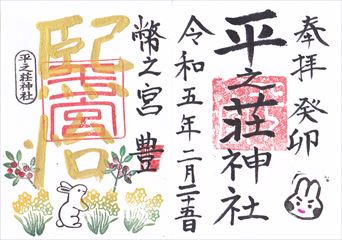 奉拝 癸卯
平之荘神社
令和五年二月二十五日
幣之宮 豊
平之荘神社